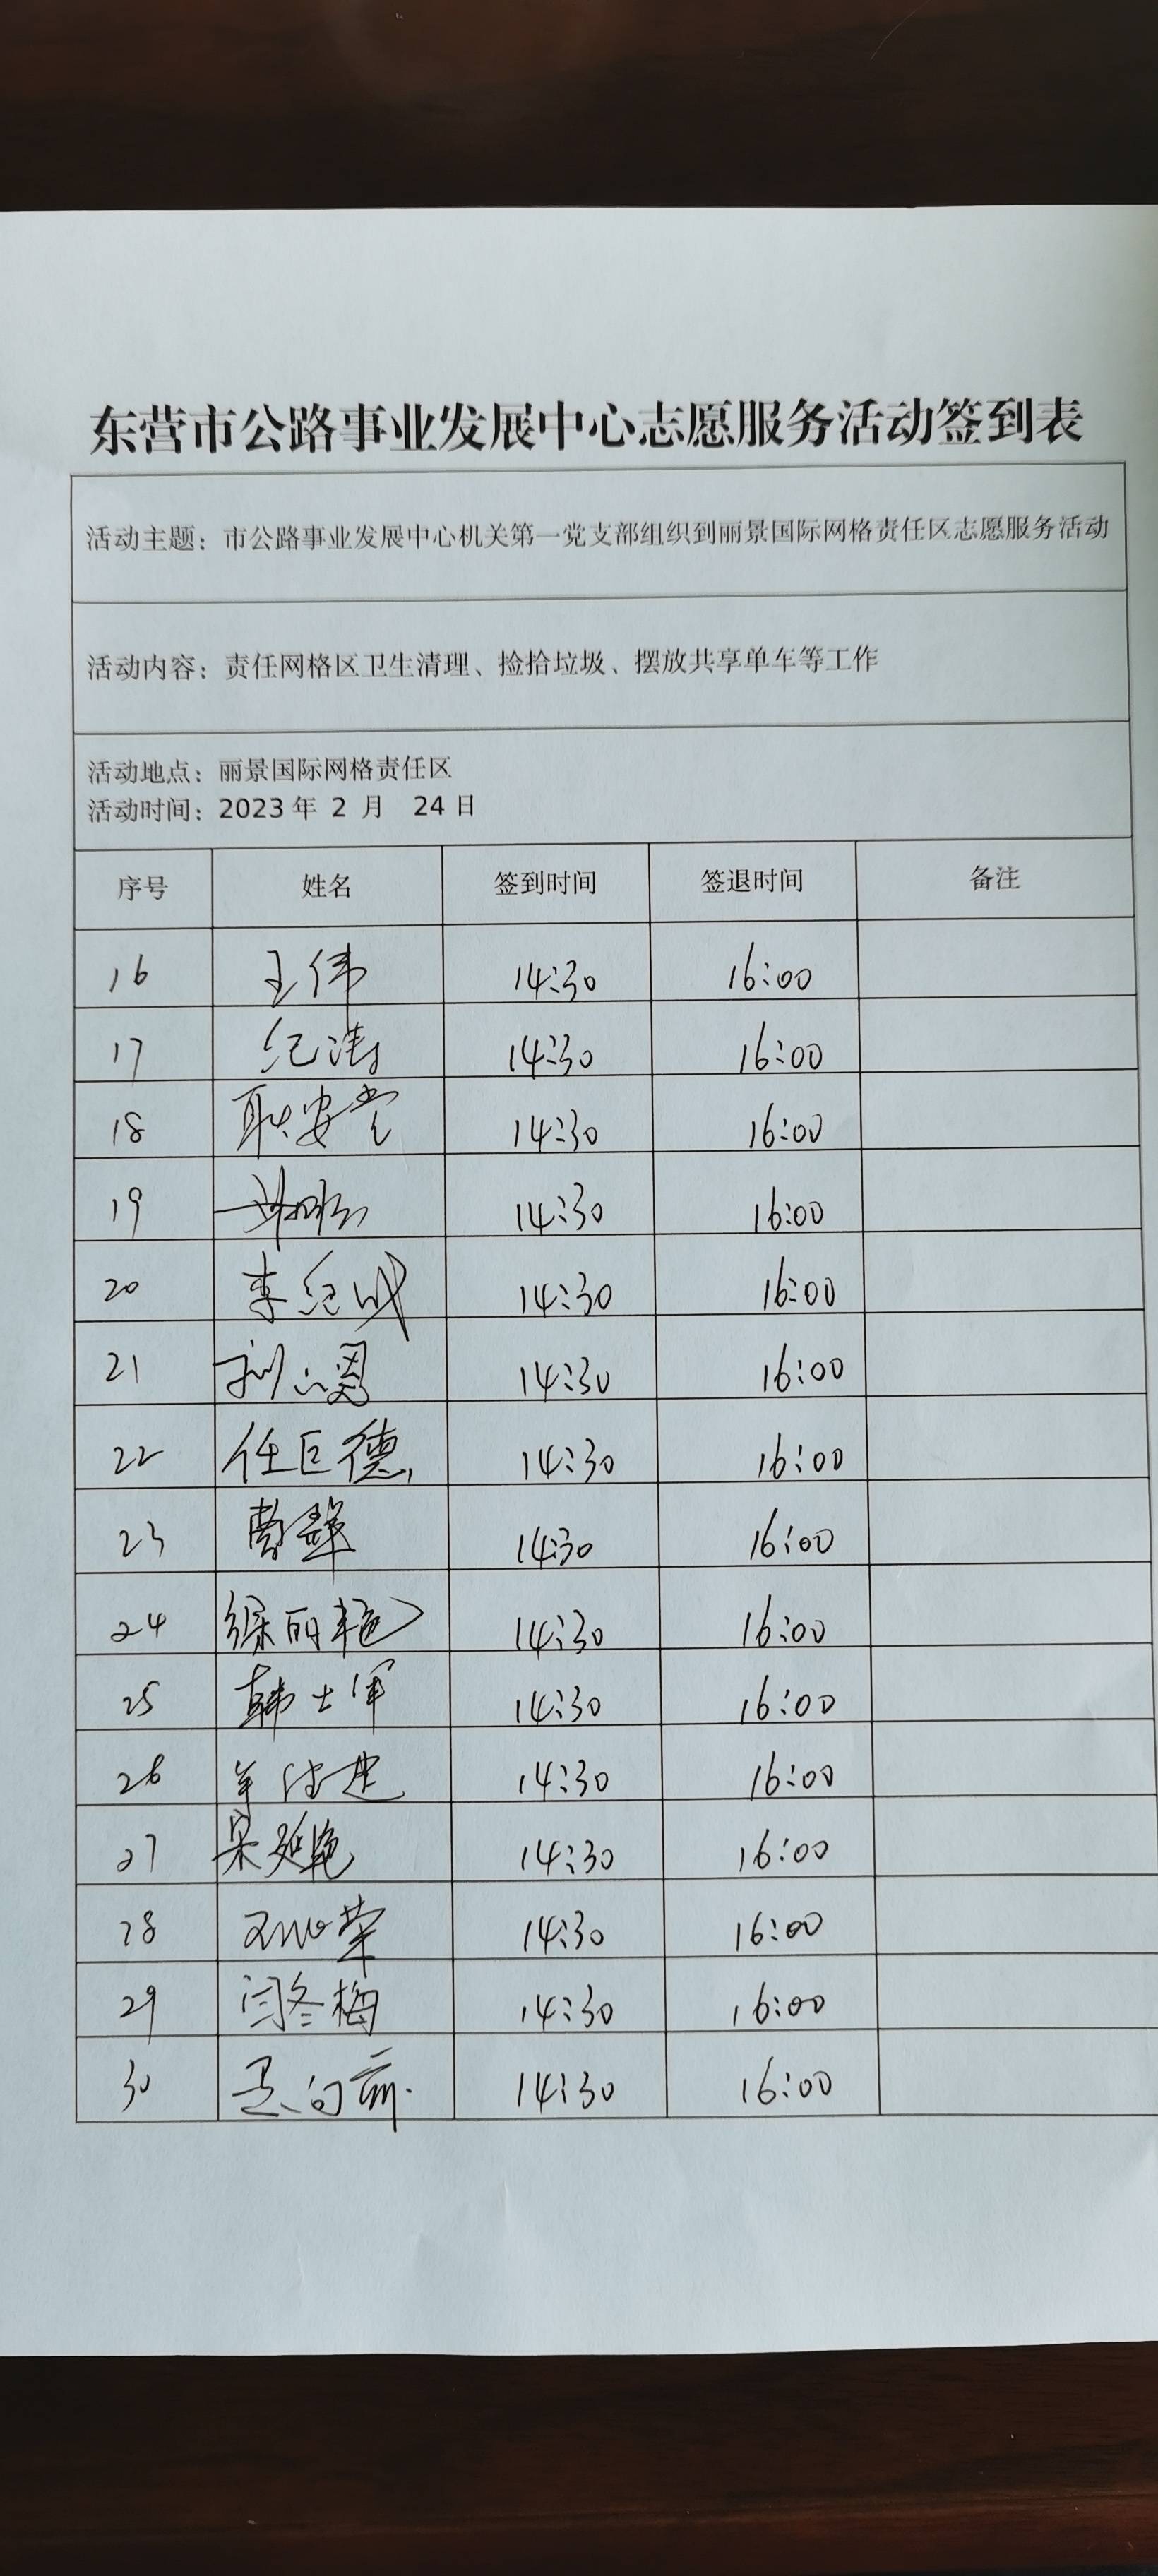 东营市公路事业发展中心志愿服务活动签到表
活动主题：市公路事业发展中心机关第一党支部组织到丽景国际网格责任区志愿服务活动
活动内容：责任网格区卫生清理、捡拾垃圾、摆放共享单车等工作
活动地点：丽景国际网格责任区
活动时间：2023年 2 月 24日
序号 姓名 签到时间 签退时间 备注
16 王伟 14:30 16:00
17 纪涛 14:30 16:00
18 耿安堂 14:30 16:00
19 14:30 16:00
20 李纪成 14:30 16:00
21 14:30 16:00
22 任巨德 14:30 16:00
23 曹辉 14:30 16:00
24 綦丽艳 14:30 16:00
25 韩士军 14:30 16:00
26 14:30 16:00
27 14:30 16:00
28 14:30 16:00
29 闫冬梅 14:30 16:00
30 14:30 16:00